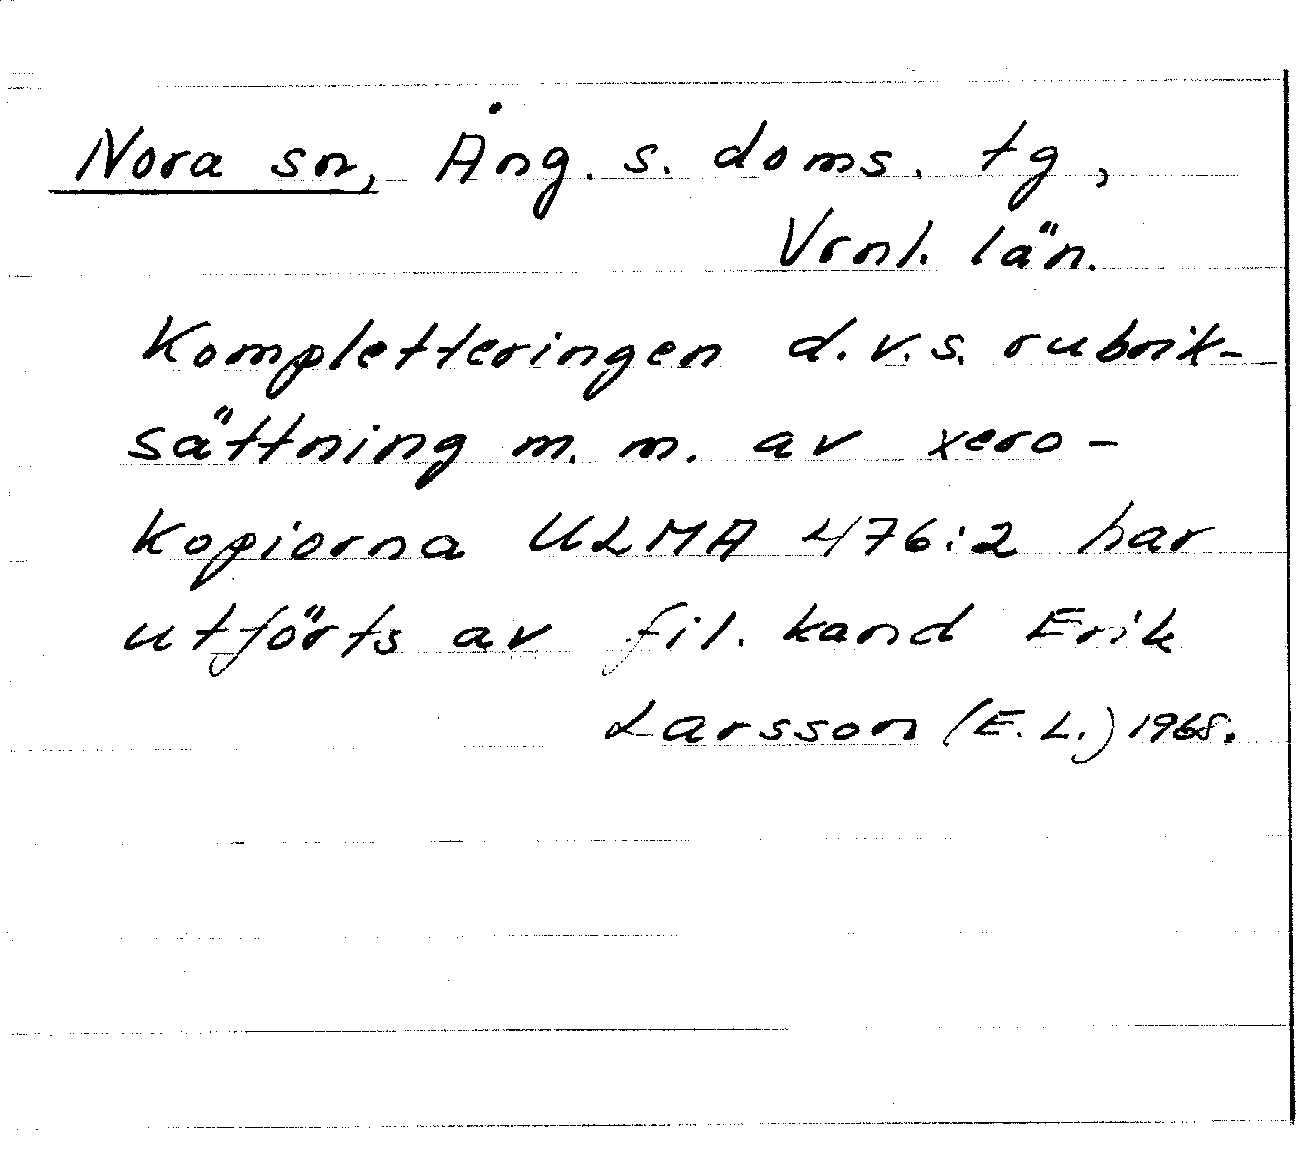 Nora sn, Ång. s. doms. tg,
Vrnl. län.
Kompletteringen d.v.s. rubrik-
sättning m. m. av xero-
kopiorna ULMA 476:2 har
utförts av fil. kand Erik
Larsson (E. L.) 1968.